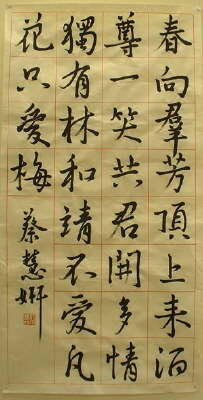 春向羣芳頂上来酒
尊一笑共君開多情
獨有林和靖不愛凡
花只愛梅
蔡慧妍